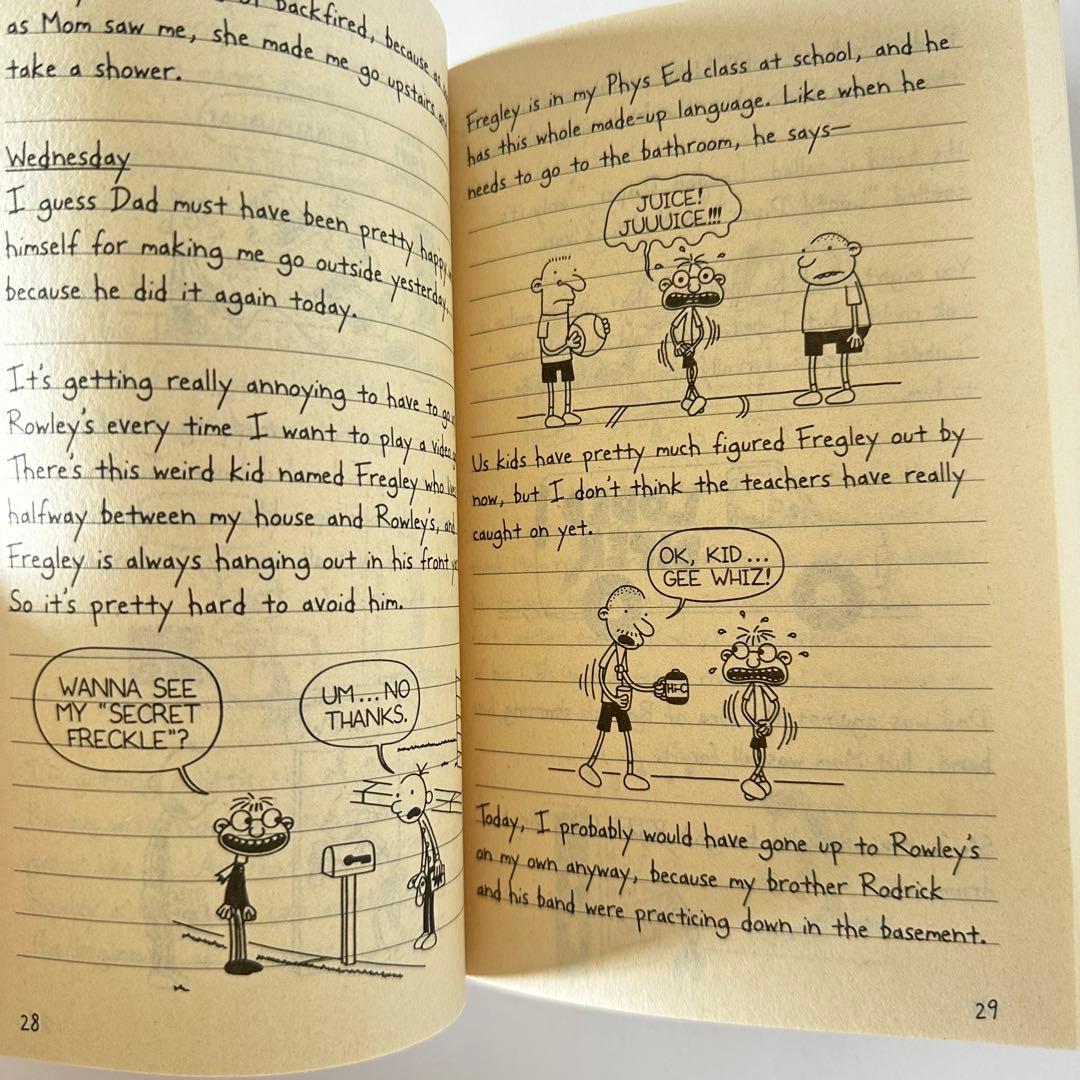 Backfired, because as
as Mom saw me, she made me go upstairs and
take a shower.
Wednesday
I guess Dad must have been pretty happy
himself for making me go outside yesterday,
because he did it again today.
It's getting really annoying to have to go
Rowley's every time I want to play a video
There's this weird kid named Fregley who
halfway between my house and Rowley's, and
Fregley is always hanging out in his front
So it's pretty hard to avoid him.
WANNA SEE
MY "SECRET
FRECKLE"?
UM... NO
THANKS.
28
Fregley is in my Phys Ed class at school, and he
has this whole made-up language. Like when he
needs to go to the bathroom, he says—
JUICE!
JUUUICE!!!
Us kids have pretty much figured Fregley out by
now, but I don't think the teachers have really
caught on yet.
OK, KID...
GEE WHIZ!
Hi-C
Today, I probably would have gone up to Rowley's
on my own anyway, because my brother Rodrick
and his band were practicing down in the basement.
29